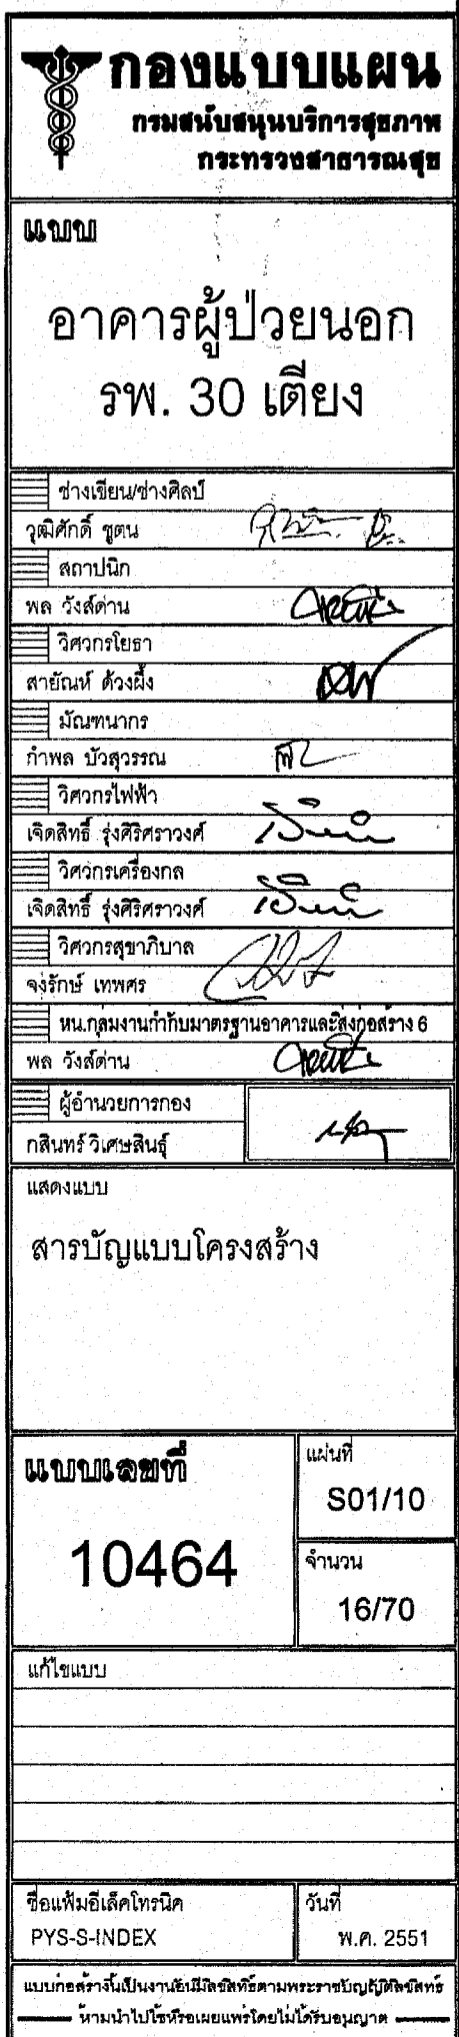 กองแบบแผน
กรมสนับสนุนบริการสุขภาพ
กระทรวงสาธารณสุข
แบบ
อาคารผู้ป่วยนอก
รพ. 30 เตียง
ช่างเขียน/ช่างศิลป์
วุฒิศักดิ์ ชูตน
สถาปนิก
พล วังส์ด่าน
วิศวกรโยธา
สายัณห์ ด้วงผึ้ง
มัณฑนากร
กำพล บัวสุวรรณ
วิศวกรไฟฟ้า
เจิดสิทธิ์ รุ่งศิริศราวงศ์
วิศวกรเครื่องกล
เจิดสิทธิ์ รุ่งศิริศราวงศ์
วิศวกรสุขาภิบาล
จงรักษ์ เทพศร
หน.กลุ่มงานกำกับมาตรฐานอาคารและสิ่งก่อสร้าง 6
พล วังส์ด่าน
ผู้อำนวยการกอง
กสินทร์ วิเศษสินธุ์
แสดงแบบ
สารบัญแบบโครงสร้าง
แบบเลขที่
10464
แผ่นที่
S01/10
จำนวน
16/70
แก้ไขแบบ
ชื่อแฟ้มอีเล็คโทรนิค
PYS-S-INDEX
วันที่
พ.ค. 2551
แบบก่อสร้างนี้เป็นงานอันมีลิขสิทธิ์ตามพระราชบัญญัติลิขสิทธิ์
ห้ามนำไปใช้หรือเผยแพร่โดยไม่ได้รับอนุญาต